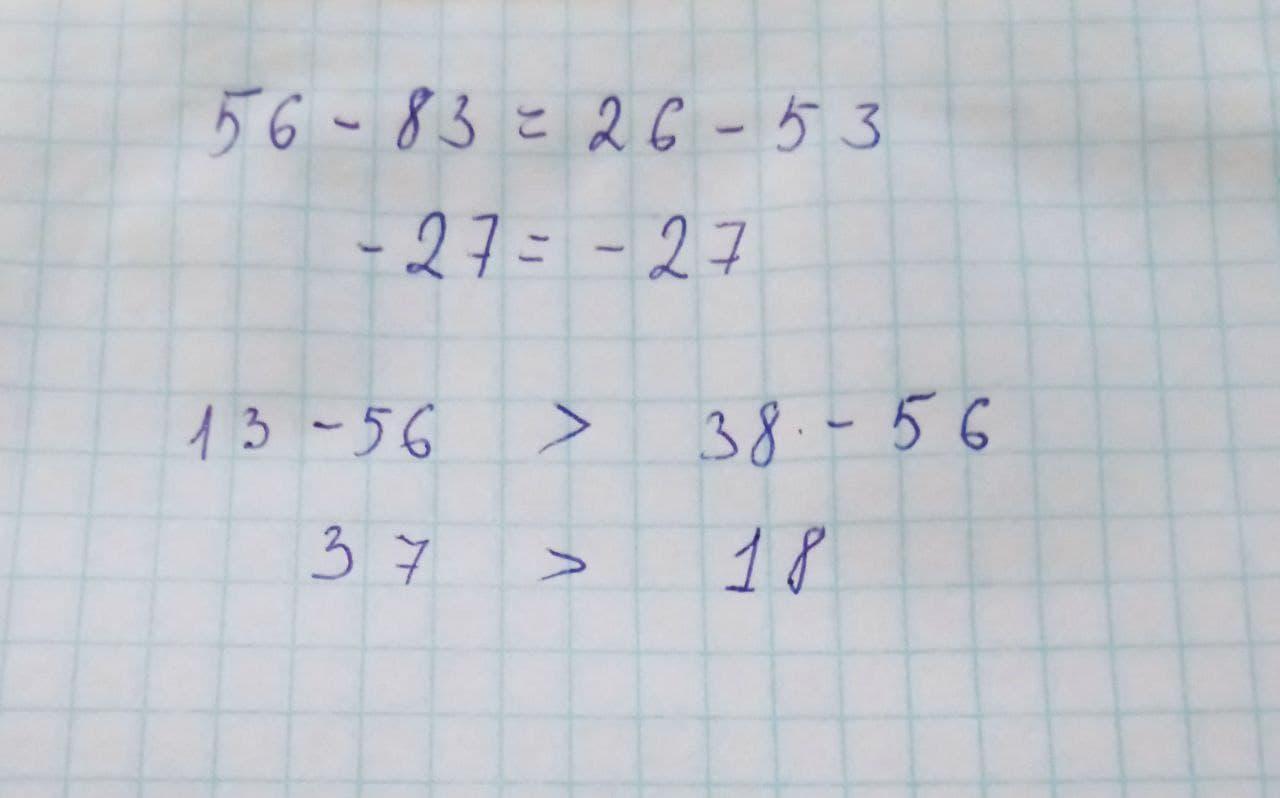 56 - 83 = 26 - 53
-27 = -27
13 - 56 > 38 - 56
37 > 18